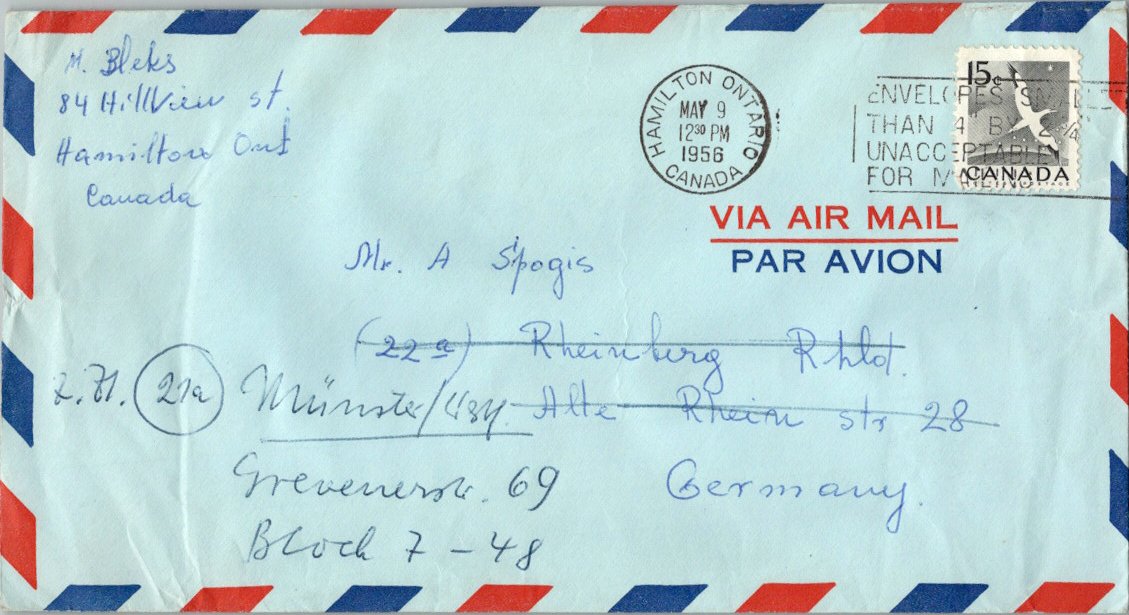 M. Bleks
84 Hillview st.
Hamilton Ont
Canada
HAMILTON ONTARIO
MAY 9
1230 PM
1956
CANADA
15c
CANADA
ENVELOPES SMALLER
THAN 4" BY 2¾"
UNACCEPTABLE
FOR MAILING
VIA AIR MAIL
PAR AVION
Mr. A Spogis
(22a) Rheinberg Rhld.
Alte Rhein str 28
Germany.
z. Zt. (21a) Münster/Westf.
Grevenerstr. 69
Block 7 - 48